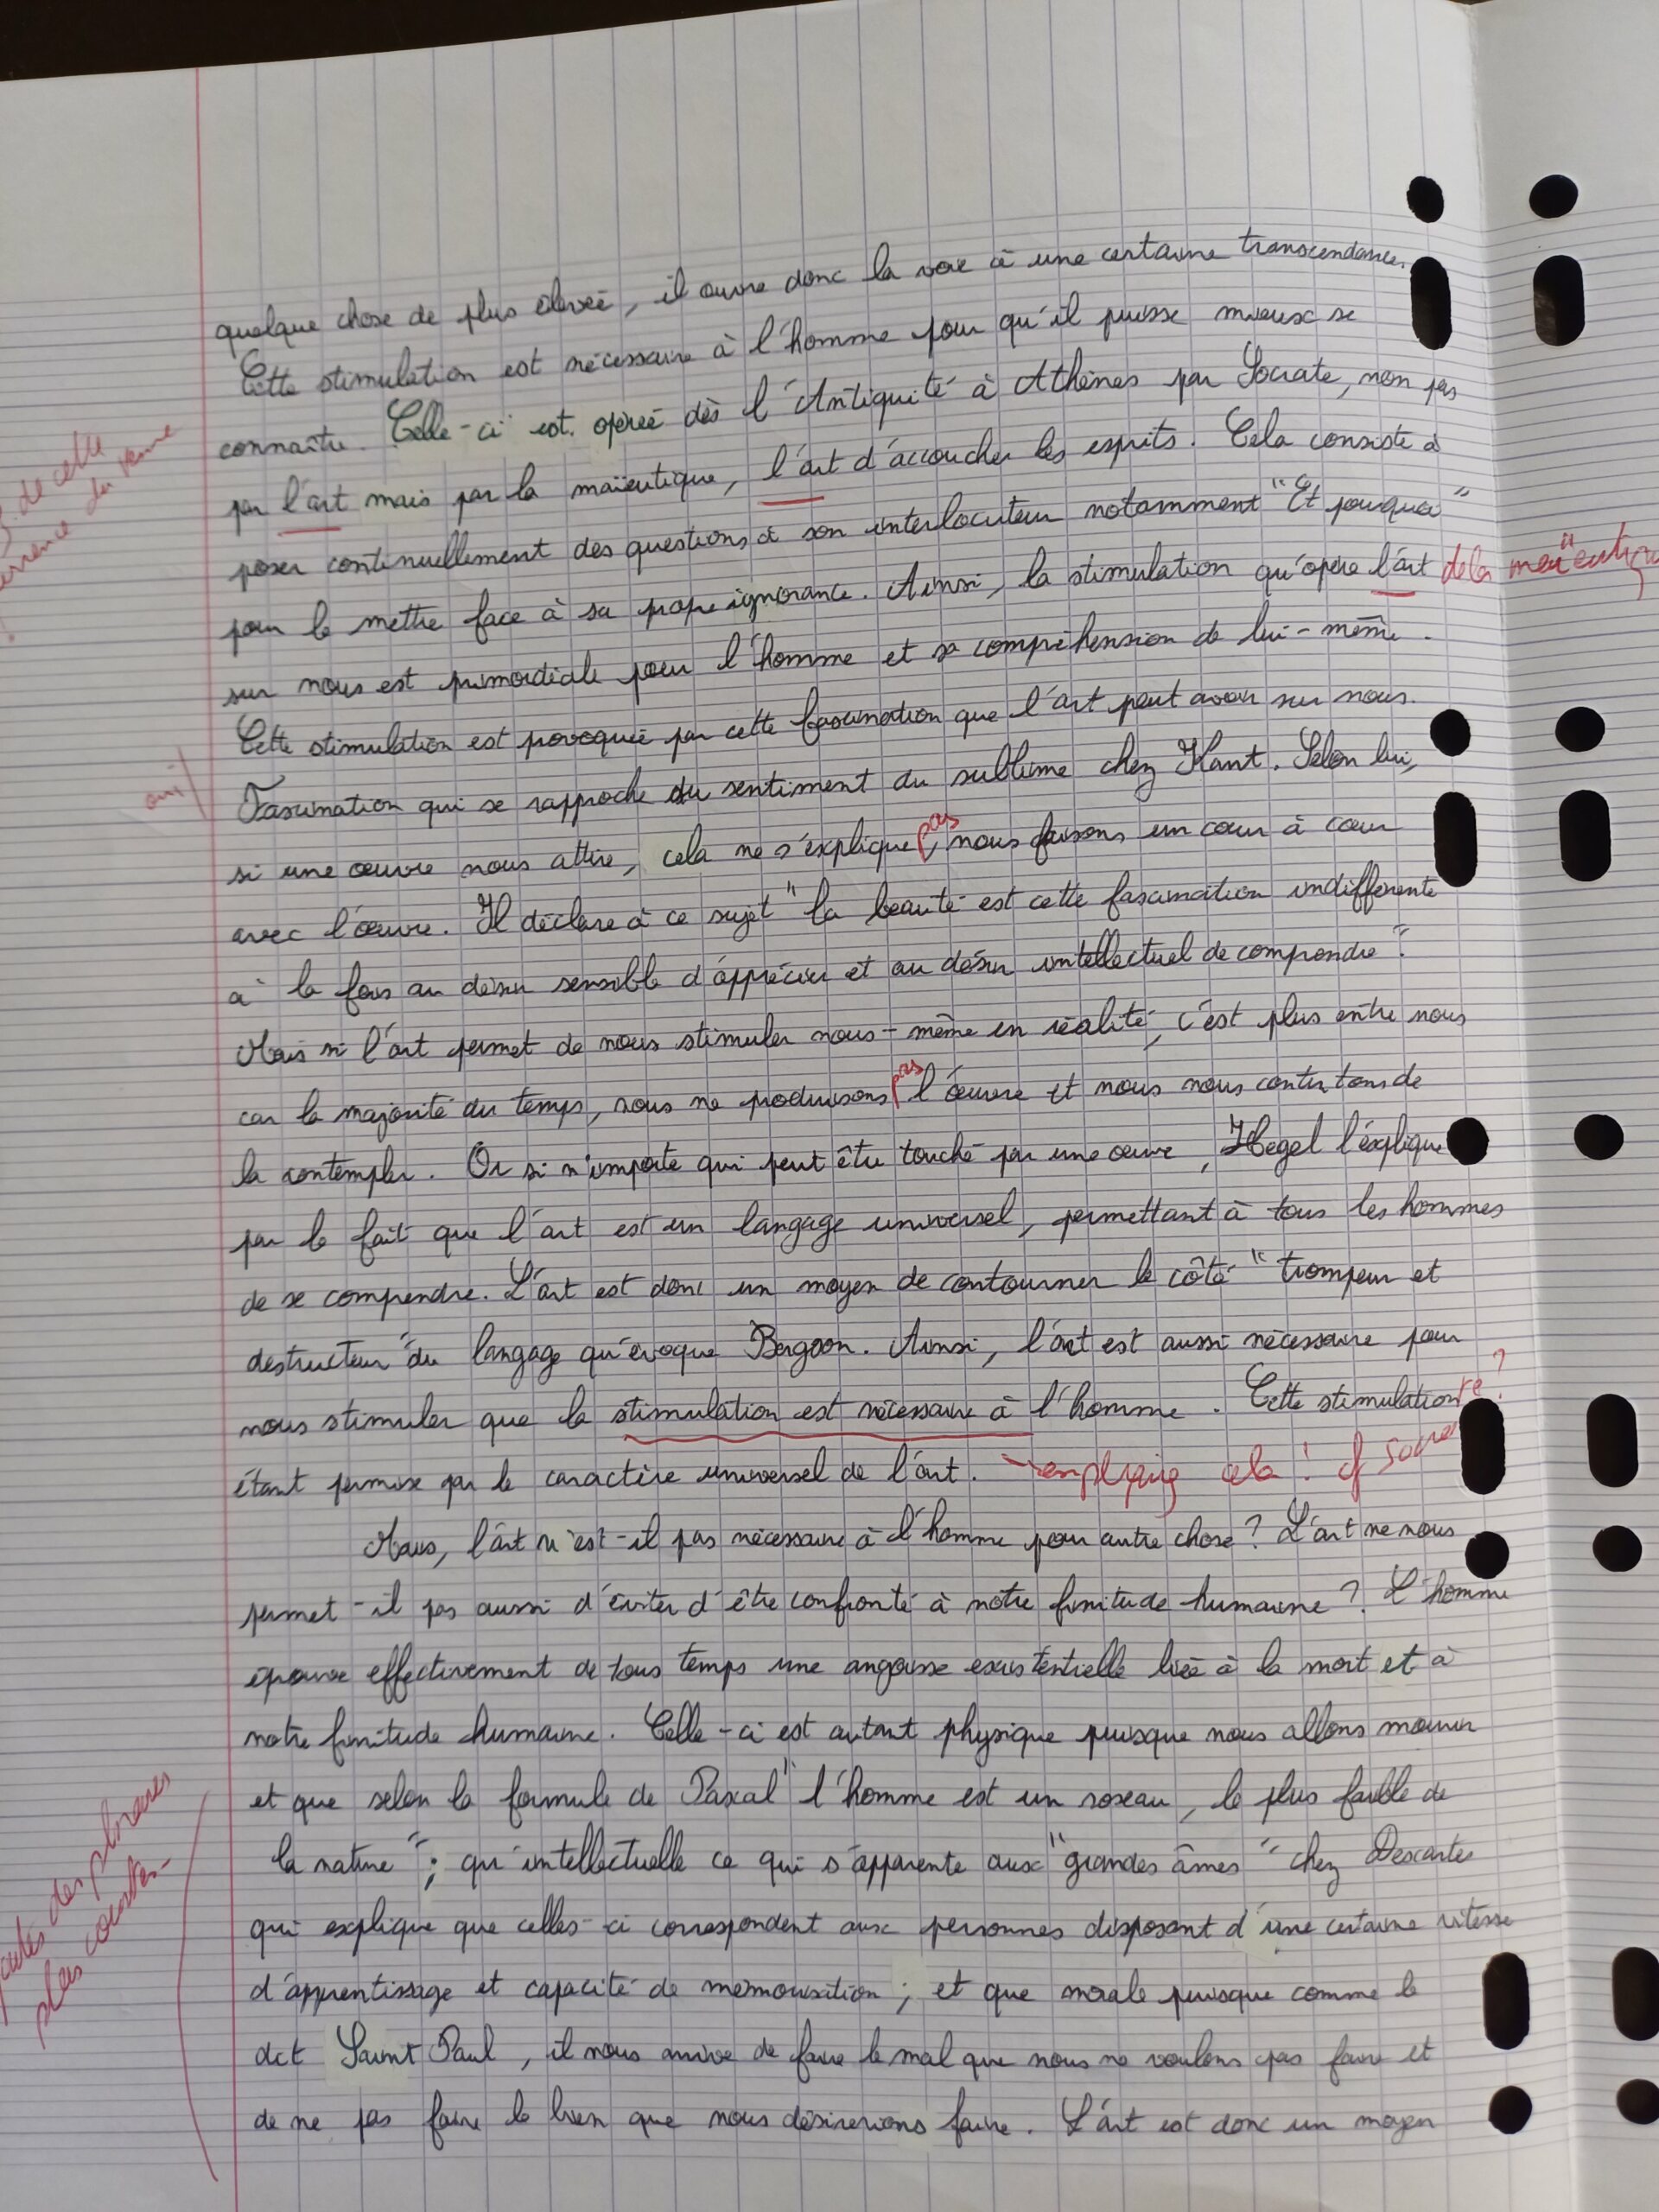 quelque chose de plus élevé, il ouvre donc la voie à une certaine transcendance.
Cette stimulation est nécessaire à l'homme pour qu'il puisse mieux se
connaître. Celle-ci est opéreé dès l'Antiquité à Athènes par Socrate, non pas
par l'art mais par la maïeutique, l'art d'accoucher les esprits. Cela consiste à
de cette
du terme
poser continuellement des questions à son interlocuteur notamment "Et pourquoi"
pour le mettre face à sa propre ignorance. Ainsi, la stimulation qu'opère l'art de la
sur nous est primordiale pour l'homme et sa compréhension de lui-même.
Cette stimulation est provoqueé par cette fascination que l'art peut avoir sur nous.
oui
Fascination qui se rapproche du sentiment du sublime chez Kant. Selon lui,
si une œuvre nous attire, cela ne s'explique pas, nous faisons un cœur à cœur
avec l'œuvre. Il déclare à ce sujet "la beauté est cette fascination indifférente
à la fois au désir sensible d'apprécier et au désir intellectuel de comprendre".
Mais si l'art permet de nous stimuler nous-même en réalité, c'est plus entre nous
car la majorité du temps, nous ne produisons pas l'œuvre et nous nous contentons de
la contempler. Or si n'importe qui peut être touché par une œuvre, Hegel l'explique
par le fait que l'art est un langage universel, permettant à tous les hommes
de se comprendre. L'art est donc un moyen de contourner le côté "trompeur et
destructeur" du langage qu'évoque Bergson. Ainsi, l'art est aussi nécessaire pour
nous stimuler que la stimulation est nécessaire à l'homme. Cette stimulation re?
étant permise par le caractère universel de l'art. cela !
Mais, l'art n'est-il pas nécessaire à l'homme pour autre chose ? L'art ne nous
permet-il pas aussi d'éviter d'être confronté à notre finitude humaine ? L'homme
éprouve effectivement de tous temps une angoisse existentielle lieé à la mort et à
notre finitude humaine. Celle-ci est autant physique puisque nous allons mourir
et que selon la formule de Pascal "l'homme est un roseau, le plus faible de
la nature"; qu'intellectuelle ce qui s'apparente aux "grandes âmes" chez Descartes
des phrases
plus courtes
qui explique que celles-ci correspondent aux personnes disposant d'une certaine vitesse
d'apprentissage et capacité de mémorisation ; et que morale puisque comme le
dit Saint Paul, il nous arrive de faire le mal que nous ne voulons pas faire et
de ne pas faire le bien que nous désirerions faire. L'art est donc un moyen